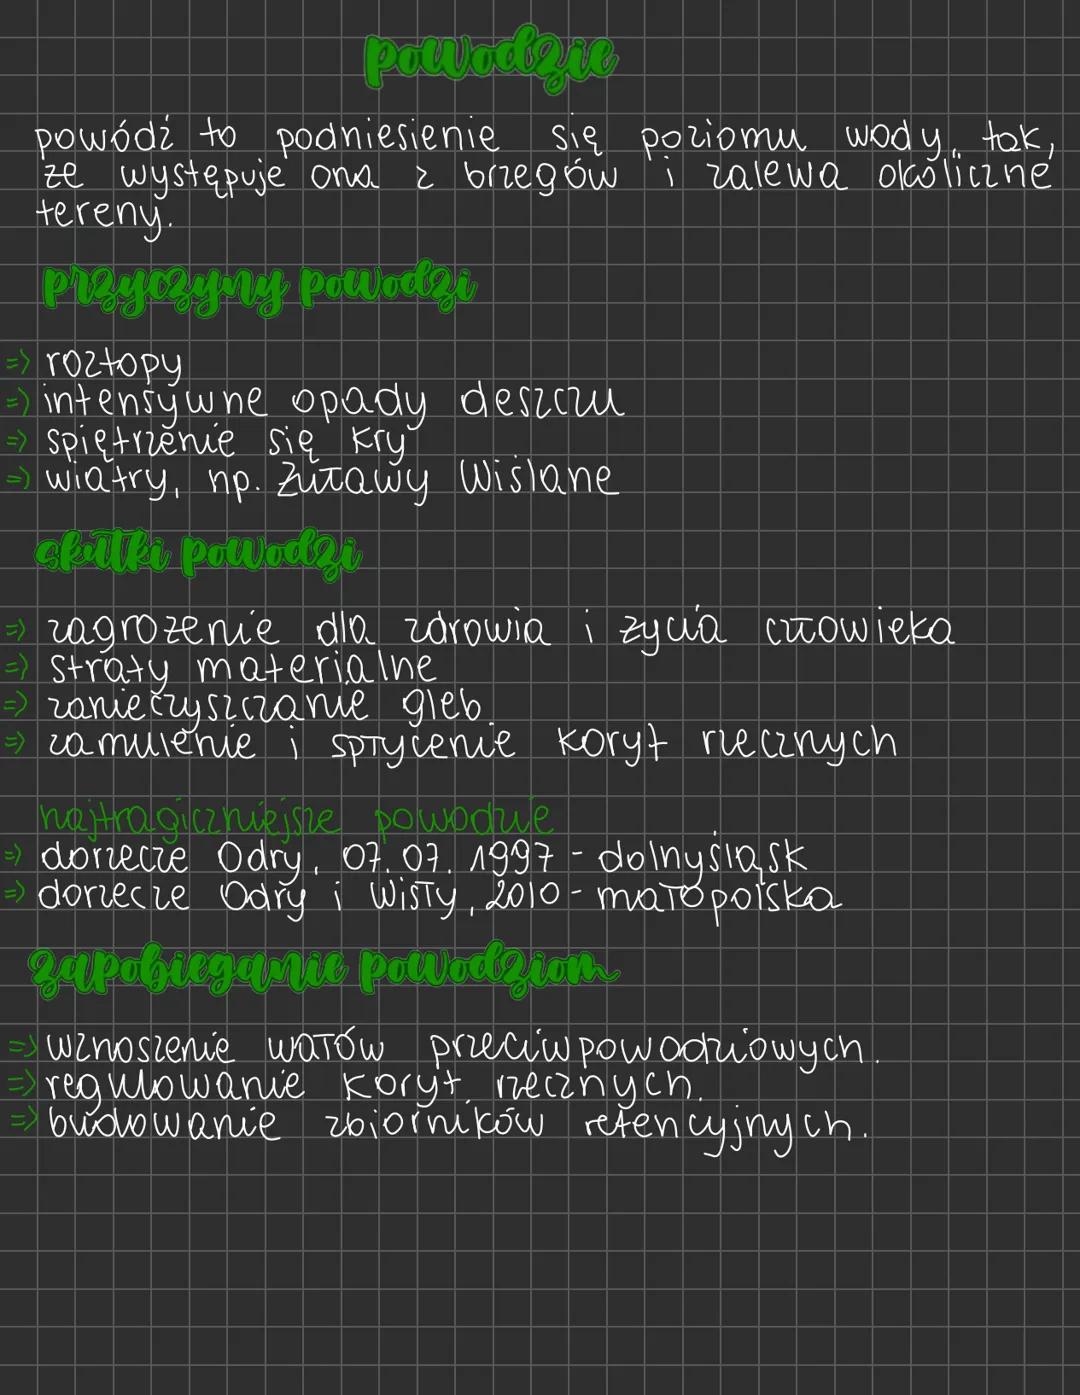 powodzie
powódź to podniesienie się poziomu wody, tak,
że występuje ona z brzegów i zalewa okoliczne
tereny.
przyczyny powodzi
=> roztopy
=> intensywne opady deszczu
=> spiętrzenie się kry
=> wiatry, np. Żuławy Wiślane
skutki powodzi
=> zagrożenie dla zdrowia i życia człowieka
=> straty materialne
=> zanieczyszczanie gleb
=> zamulenie i spłycenie koryt rzecznych
najtragiczniejsze powodzie
=> dorzecze Odry, 07.07.1997 - dolnyśląsk
=> dorzecze Odry i Wisły, 2010 - małopolska
zapobieganie powodziom
=> wznoszenie wałów przeciwpowodziowych.
=> regulowanie koryt rzecznych.
=> budowanie zbiorników retencyjnych.